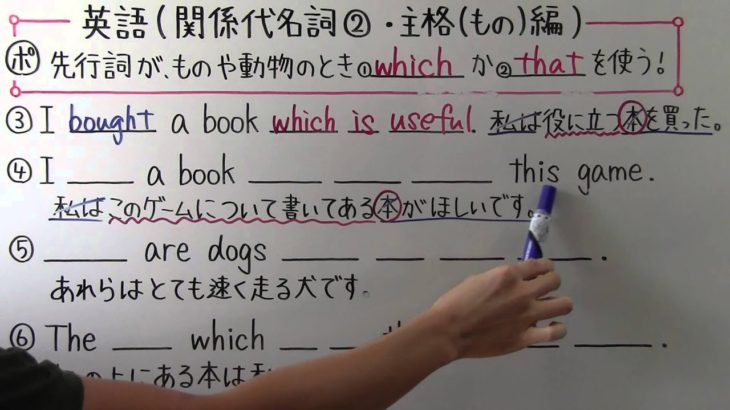 英語(関係代名詞②・主格(もの)編)
ポ 先行詞が、ものや動物のとき①whichか②thatを使う!
③ I bought a book which is useful. 私は役に立つ本を買った。
④ I ____ a book ____ ____ ____ this game.
私はこのゲームについて書いてある本がほしいです。
⑤ ____ are dogs ____ ____ ____ ____.
あれらはとても速く走る犬です。
⑥ The ____ which __ __ ____ ____.
の上にある本は